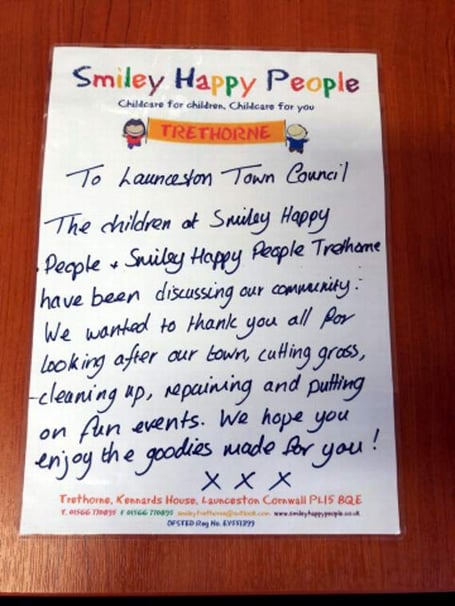 Smiley Happy People
Childcare for children, Childcare for you
TRETHORNE
To Launceston Town Council
The children at Smiley Happy
People + Smiley Happy People Trethorne
have been discussing our community.
We wanted to thank you all for
looking after our town, cutting grass,
cleaning up, repairing and putting
on fun events. We hope you
enjoy the goodies made for you!
X X X
Trethorne, Kennards House, Launceston Cornwall PL15 8QE
T. 01566 770895 F 01566 770895 smileytrethorne@outlook.com www.smileyhappypeople.co.uk
OFSTED Reg No. EY551899